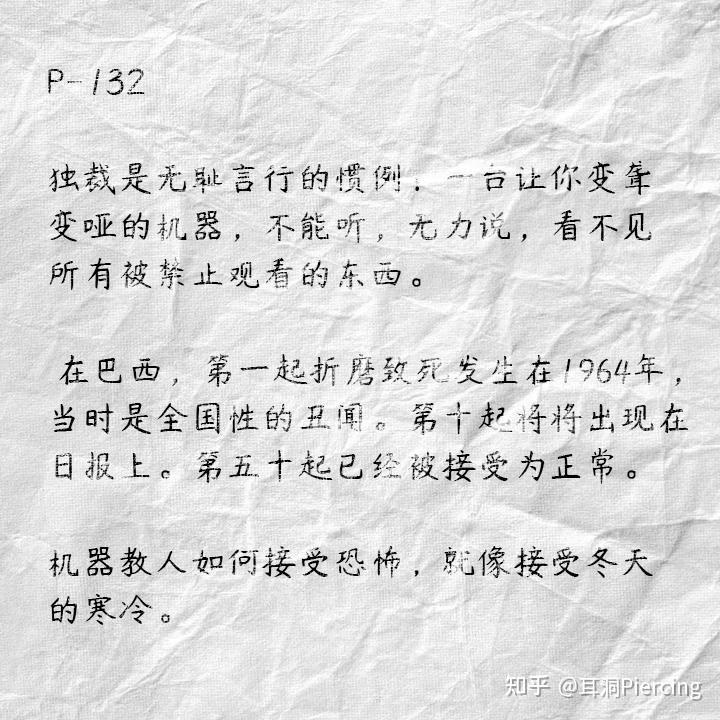 P-132
独裁是无耻言行的惯例：一台让你变聋
变哑的机器，不能听，无力说，看不见
所有被禁止观看的东西。
在巴西，第一起折磨致死发生在1964年，
当时是全国性的丑闻。第十起将将出现在
日报上。第五十起已经被接受为正常。
机器教人如何接受恐怖，就像接受冬天
的寒冷。
知乎 @耳洞Piercing